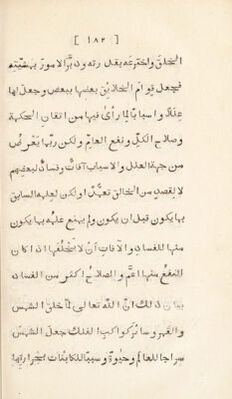 [ ١٨٢ ]
الخلق واخترعه بقدرته ودبّر الامور بمشيّته
فجعل قوام الخلائق بعضها ببعض وجعل لها
عللًا واسبابًا لما رأى فيها من اتقان الحكمة
وصلاح الكلّ ونفع العامّ ولكن ربّما يعرض
من جهة العلل والاسباب آفات وفساد لبعضهم
لا بقصد من الخالق تعمّدًا ولكن لعلمه السابق
بما يكون قبل ان يكون ولم يمنع علمه بما يكون
منها للفساد والآفات ان لا يخلقها اذ كان
النفع منها اعمّ والصلاح اكثر من الفساد
بيان ذلك انّ اللّه تعالى لمّا خلق الشمس
والقمر وسائر كواكب الفلك جعل الشمس
سراجا للعالم وحيوة وسببا للكائنات بحرارتها